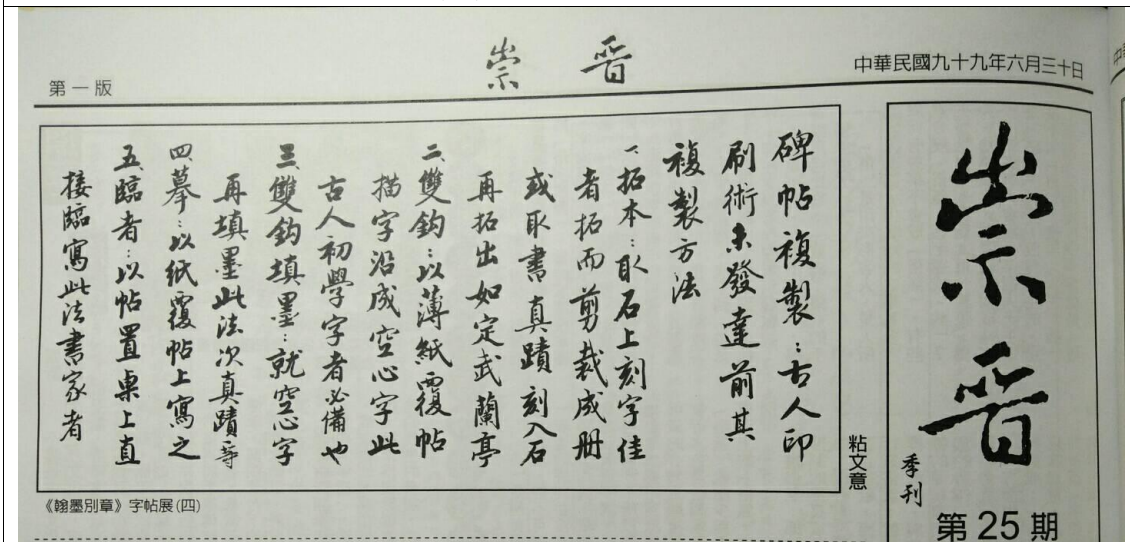 中華民國九十九年六月三十日
崇晉
第一版
崇晉
季刊
第25期
碑帖複製：古人印
刷術未發達前其
複製方法
一、拓本：取石上刻字佳
者拓而剪裁成册
或取書真蹟刻入石
再拓出如定武蘭亭
二、雙鈎：以薄紙覆帖
描字沿成空心字此
古人初學字者必備也
三、雙鈎填墨：就空心字
再填墨此法次真蹟等
四、摹：以紙覆帖上寫之
五、臨者：以帖置桌上直
接臨寫此法書家者
粘文意
《翰墨別章》字帖展(四)